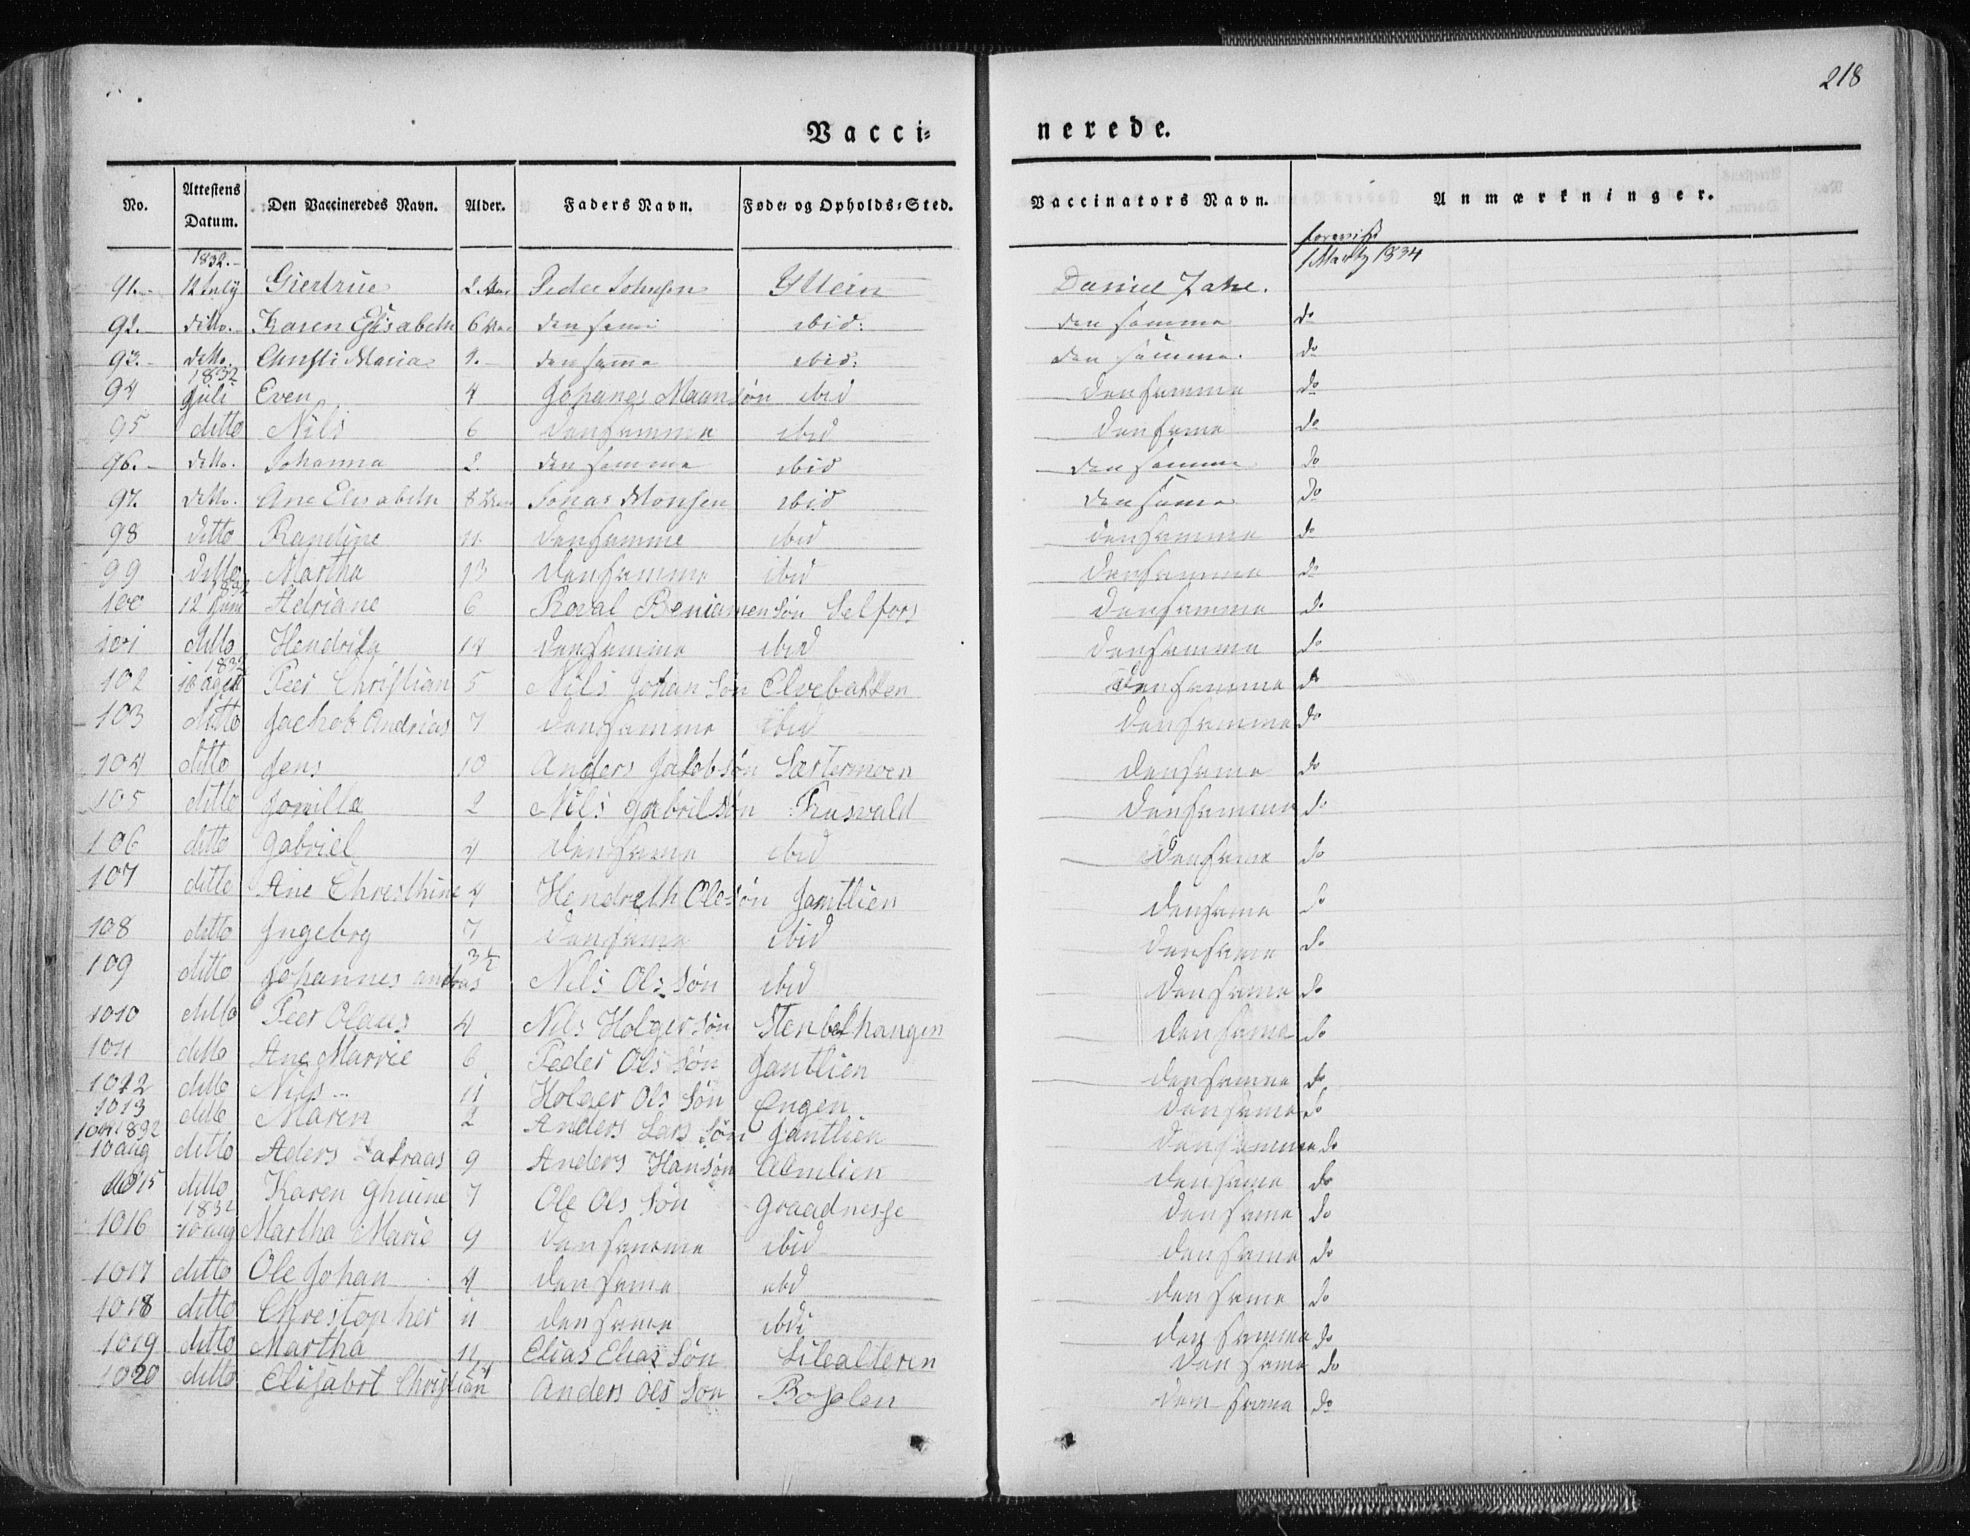 218
Vacci= nerede.
No. Attestens Datum. Den Vaccineredes Navn. Alder. Faders Navn. Føde= og Opholds=Sted. Vaccinators Navn. Anmærkninger.
1832.- 1 Martz 1834
91.- 12 July Giertrue 2. Peder Johnsen Yttern Daniel
92.- ditto.- Karen Elisabeth 6 den samme ibid: den samme do
93.- ditto. Maria den samme ibid: den samme. do
1832
94 Juli Even 4 Johanes ibid den samme do
95 ditto Nils 6 den samme ibid den same do
96.- ditto. Johanna 2. den samme ibid den samme do
97. ditto. Ane Elisabeth 8 Jonas Monsen ibid den same do
98 ditto Randine 11 den samme ibid den samme do
99 ditto Martha 13 den samme ibid den samme do
1832
100 12 Juni Adriane 6 Beniamen søn Selfors den samme do
101 ditto 14 den samme ibid den samme do
1832
102 10 Peer Christian 5 Nils Johan søn Elvebakken den samme do
103 ditto Jachob Andrias 7 den samme ibid den samme do
104 ditto Jens 10 Anders Jakob søn Sætermoen den same do
105 ditto 2 Nils Gabril søn den samme do
106 ditto Gabriel 4 den same ibid den same do
107 ditto Ane Chresthine 4 Ole søn Jamtlien den same do
108 ditto Ingebrg 7 den same ibid den same do
109 ditto Johannes andras 3½ Nils Ols søn ibid den same do
1010 ditto Peer Olaus 4 Nils Holger søn den same do
1011 ditto Ane Marrie 6 Peder Ols søn Jamtlien den same do
1012 ditto Nils 11 Holger Ols søn Engen den same do
1013 ditto Maren 2 Anders Lars søn Jamtlien den samme do
1014 1832
10 aug ditto Aders 9 Anders Hansøn Almlien den same do
1015 ditto Karen 7 Ole Ols søn Graadnesse den same do
1832
1016 10 aug Martha Marie 9 den samme ibid den same do
1017 ditto Ole Johan 4 den same ibid den same do
1018 ditto Chrestopher 11 den same ibid den samme do
1019 ditto Martha 11 Elias Elias søn den same do
1020 ditto Elisabet Christian Anders Ols søn den same do